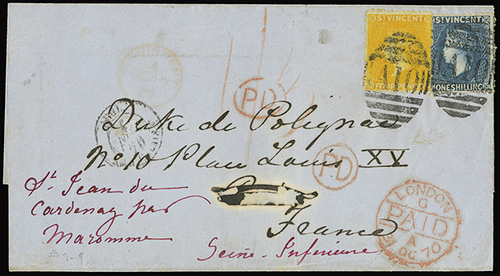 ST VINCENT ST VINCENT
FOUR PENCE ONE SHILLING
A10
PD
Duke de Polignac
No 10 Place Louis XV
PD
St Jean du
Cardenay par
Maromme
France
Seine-Inférieure
LONDON
G
PAID
A
OC 70